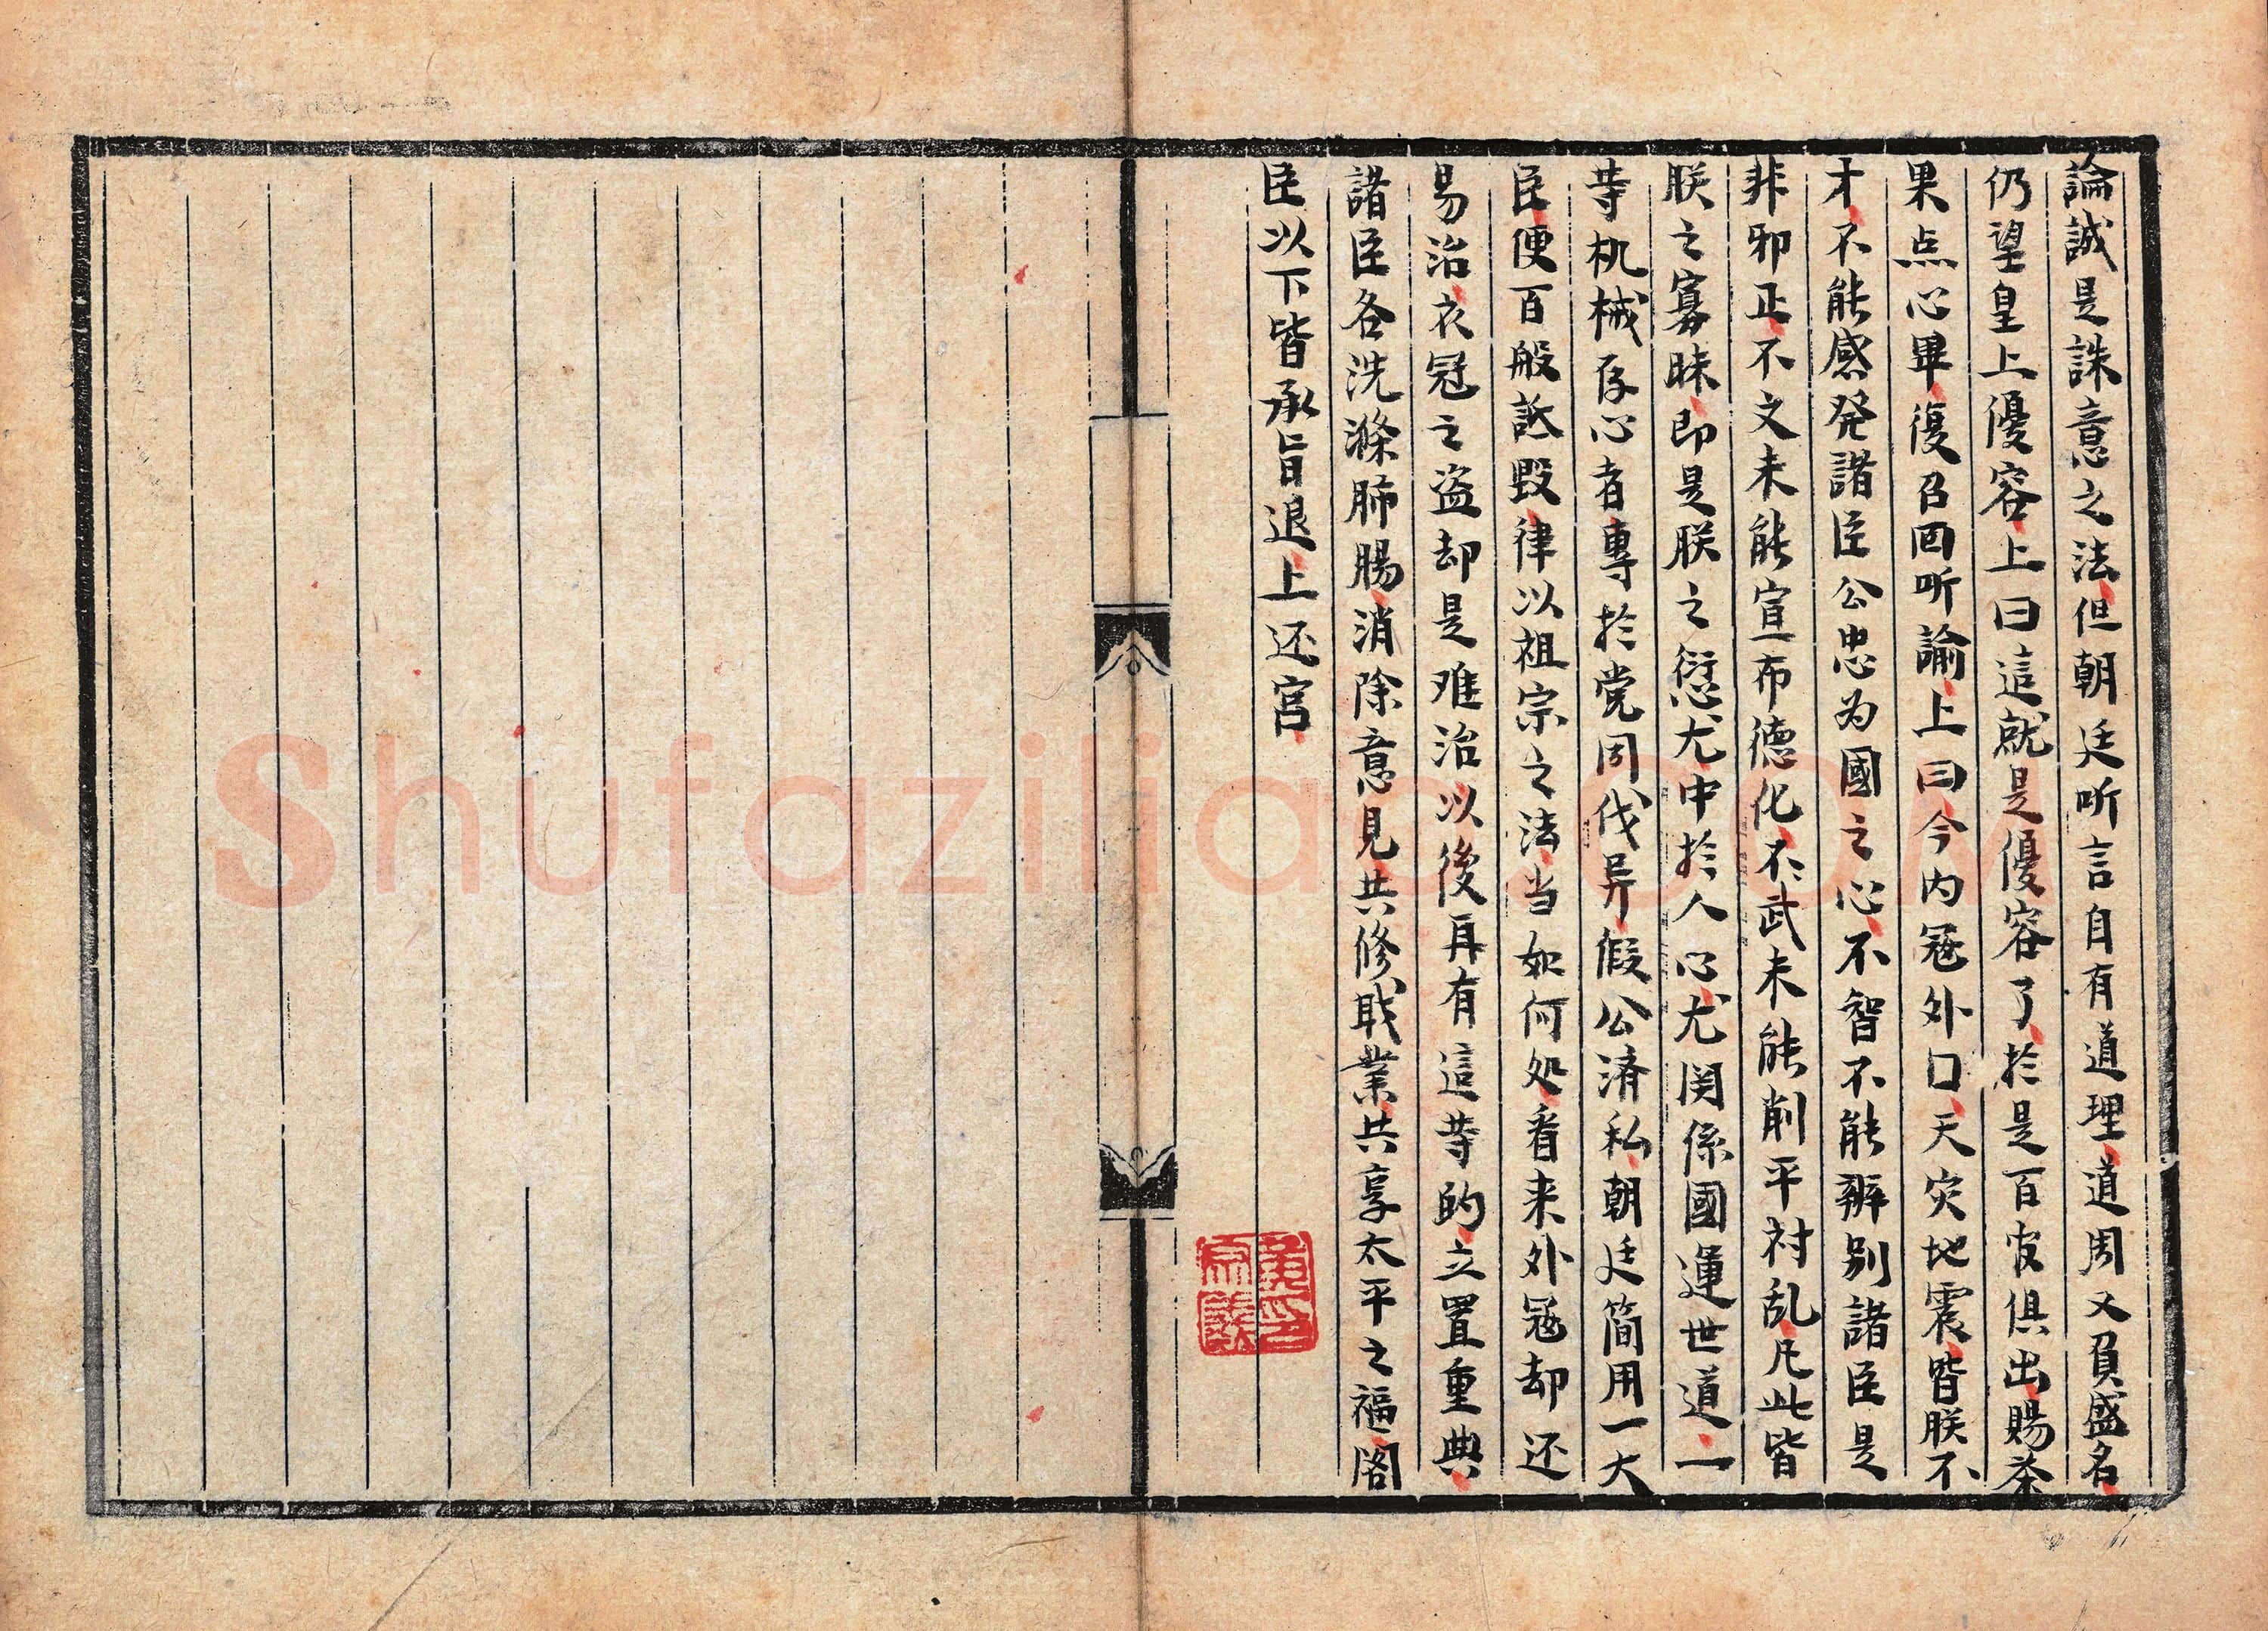 論誠是誅意之法但朝廷听言自有道理道周又負盛名
仍望皇上優容上曰這就是優容了於是百官俱出賜茶
果点心畢復召回听諭上曰今內寇外口天灾地震皆朕不
才不能感発諸臣公忠为國之心不智不能辨别諸臣是
非邪正不文未能宣布德化不武未能削平祸乱凡此皆
朕之寡昧即是朕之愆尤中於人心尤関係國運世道一
䓁机械存心者專於党同伐异假公済私朝廷简用一大
臣便百般詆毀律以祖宗之法当如何处看来外寇却还
易治衣冠之盗却是难治以後再有這䓁的立置重典
諸臣各洗滌肺腸消除意見共修职業共享太平之福閣
臣以下皆承旨退上还宫
Shufaziliao.COM